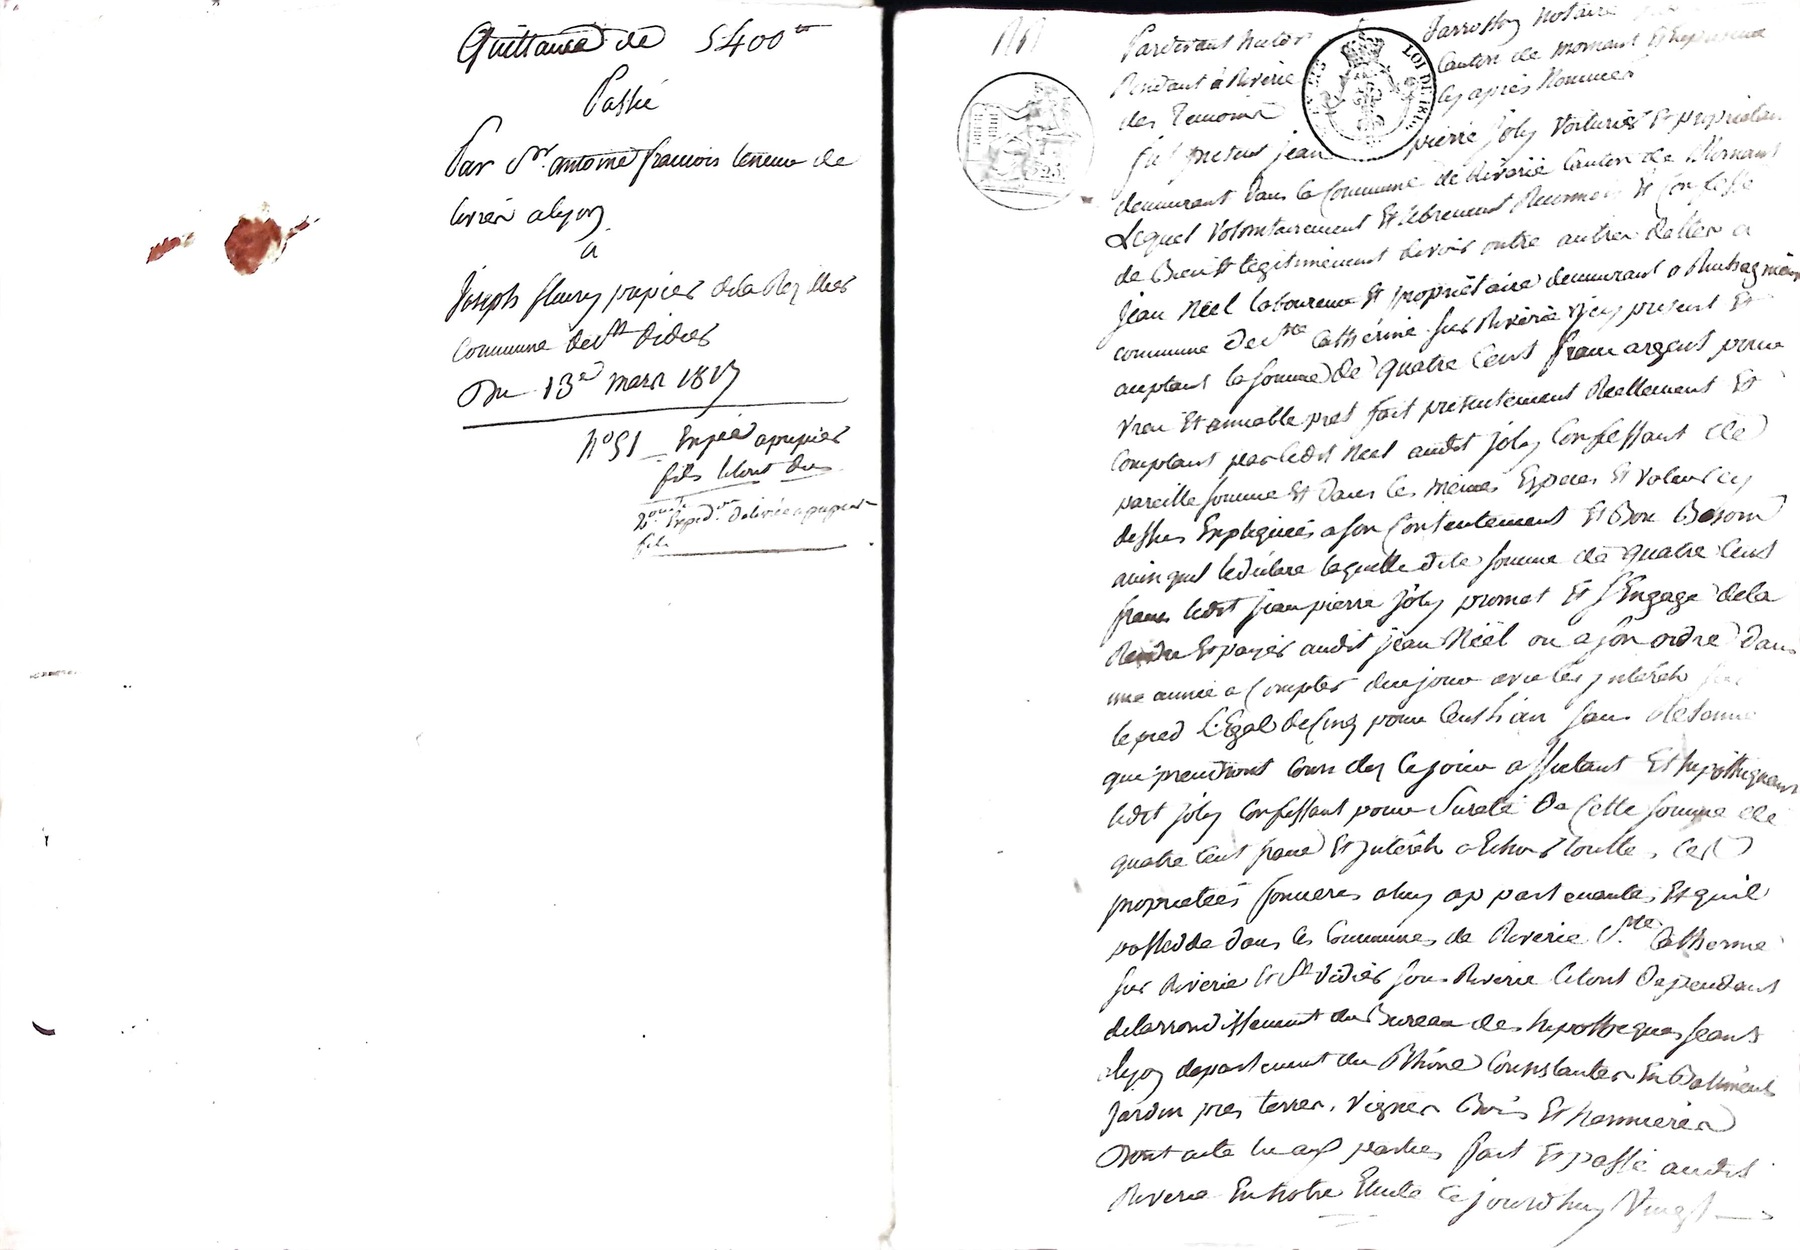 Quittance de 5400 tt
Passé
Par Sr. antoine francois teneur de
livres a lyon
a
Joseph fleury pupier de la
Commune de st didier
Du 13e mars 1817
N° 51 Expiée a pupier
fils le tout du
2eme Expedon. delivrée a pupier
fils
Pardevant Jarrosson Notaire
Residant à Riverie Canton de mornant Et En presence
des Temoins cy après Nommés
fut present jean pierre joly Voiturier & proprietaire
demeurant dans la Commune de Riverie Canton de Mornant
Lequel Volontairement Et librement Reconnoit Et Confesse
de Bien Et legitimement devoir outre autres dettes a
Jean Néel laboureur Et propriétaire demeurant a
commune de Ste Cathérine sur Riverie icy present Et
acceptant la somme de quatre Cent franc argent pour
vrai Et amiable pret fait presentement Reellement Et
Comptant par ledit Neel audit joly Confessant de
pareille somme Et dans les memes Especes Et Valeur cy
dessus Expliquées a son Contentement Et Bon Besoin
ainsi quil le déclare laquelle dite somme de quatre Cent
franc ledit jean pierre joly promet Et s'Engage de la
Rendre Et payer audit jean Néel ou a son ordre dans
une année a Compter du jour avec les jnterêts
le pied L'Egal de Cinq pour Cent l'an sans Retenue
qui prendront Cours des Ce jour affectant Et hipothéquant
ledit joly Confessant pour Sureté De Cette somme de
quatre Cent franc Et jnterêts a Echoir toutte Ces
proprietées foncieres a luy appartenante Et quil
possedde dans les Communes de Riverie Ste Catherine
sur Riverie Et St didier sous Riverie le tout Dependant
de larrondissement du Bureau des hipotheques seant
a lyon departement du Rhône Consistantes En Batiment
Jardin pres terres, Vignes Bois Et hermieres
Dont acte lu aux parties fait Et passé audit
Riverie En notre Etude Ce jourdhuy Vingt